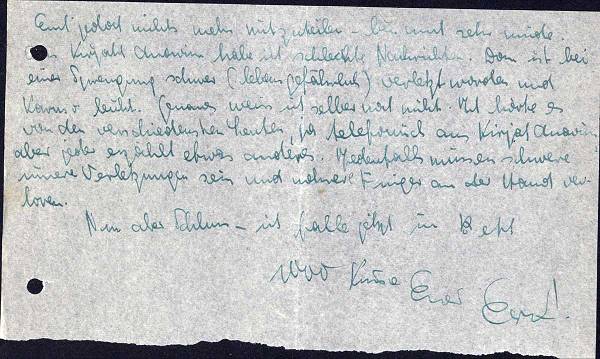 Euch jedoch nichts mehr mitzuteilen – bin und sehr müde.
Kirjath Anavim habe ich schlechte Nachrichten. Dan ist bei
einer Sprengung schwer (lebensgefährlich) verletzt worden und
leicht. Genaues weiss ich selber noch nicht. Ich hörte es
von den verschiedensten Leuten, ja telefonisch aus Kirjat Anavim
aber jeder erzählt etwas anderes. Jedenfalls müssen schwere
innere Verletzungen sein und mehrere Finger an der Hand ver-
loren.
Nun aber Schluss – ich falle jetzt in Bett
1000 Küsse Euer